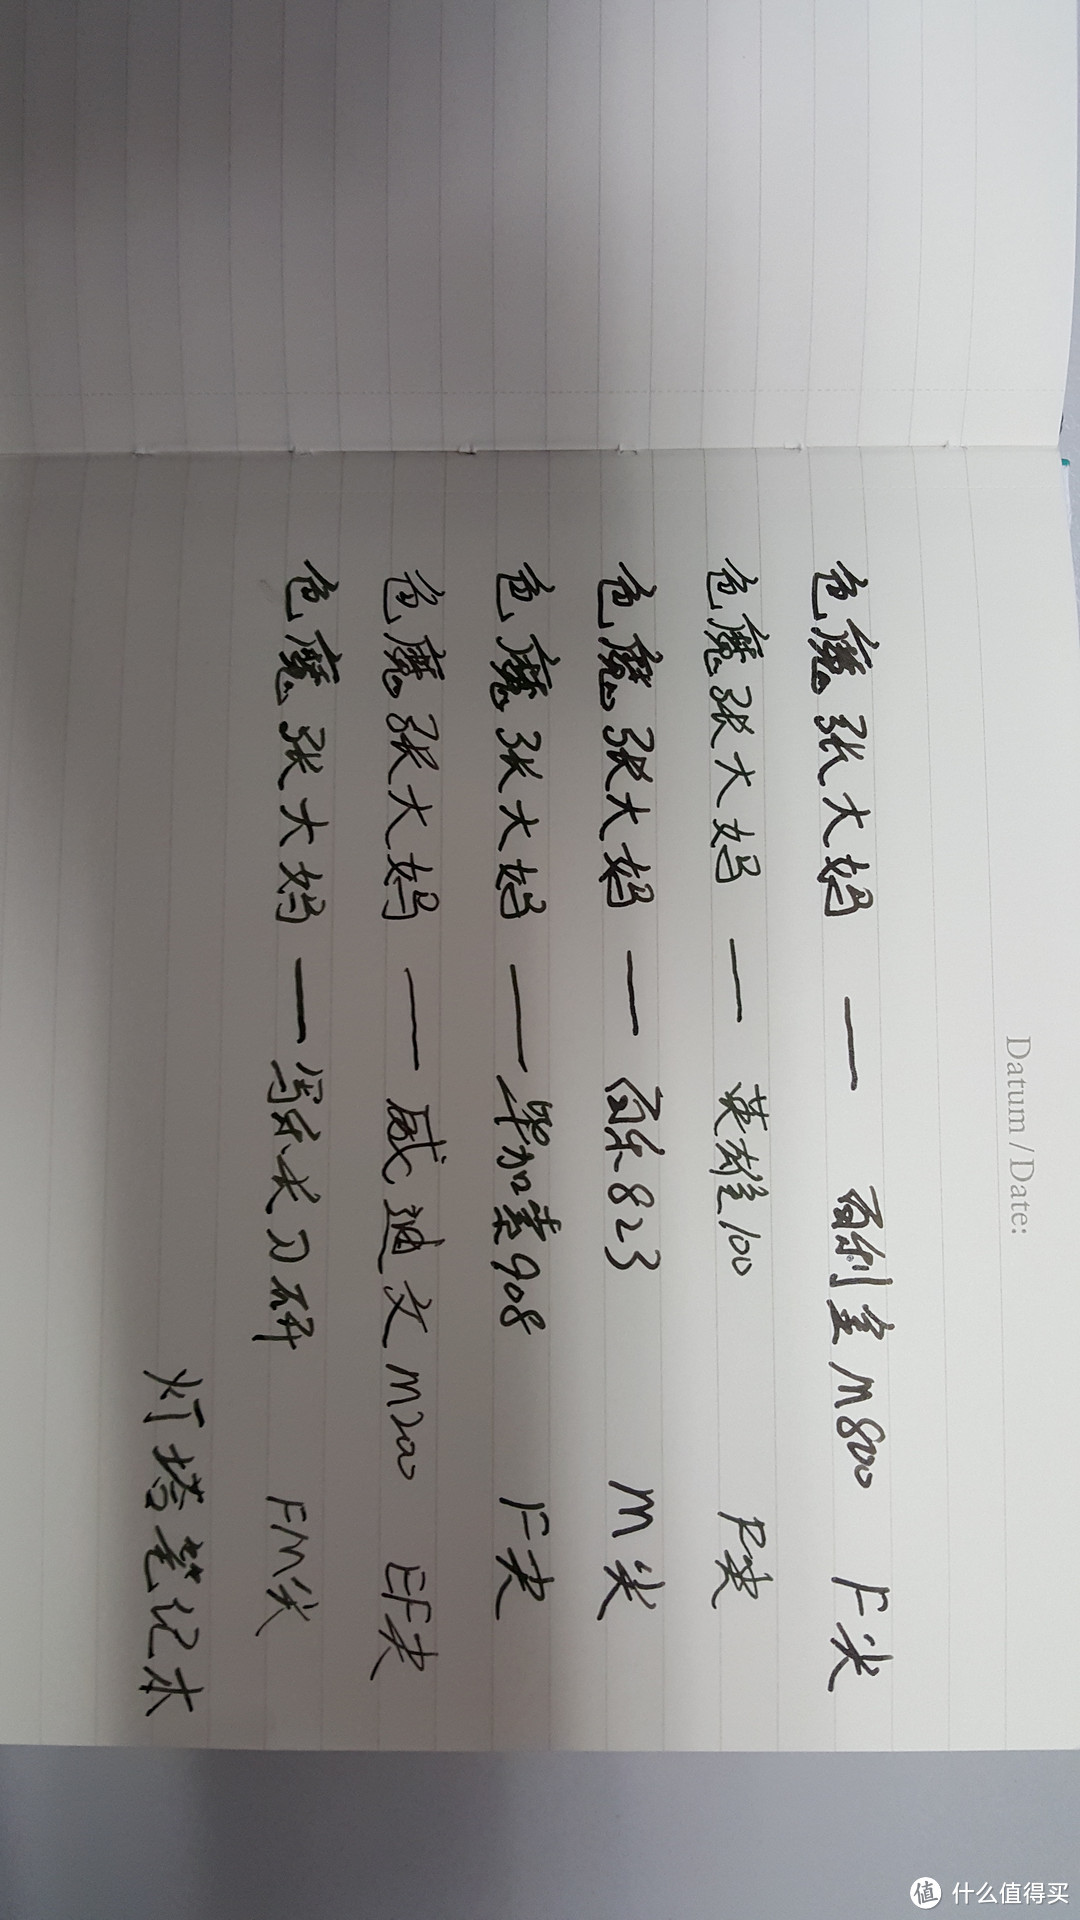 Datum / Date:
色魔张大妈 — 百利金M800 F尖
色魔张大妈 — 英雄100 F尖
色魔张大妈 — 百乐823 M尖
色魔张大妈 — 毕加索908 F尖
色魔张大妈 — 威迪文M200 EF尖
色魔张大妈 — 写乐长刀研 FM尖
灯塔笔记本
值 什么值得买